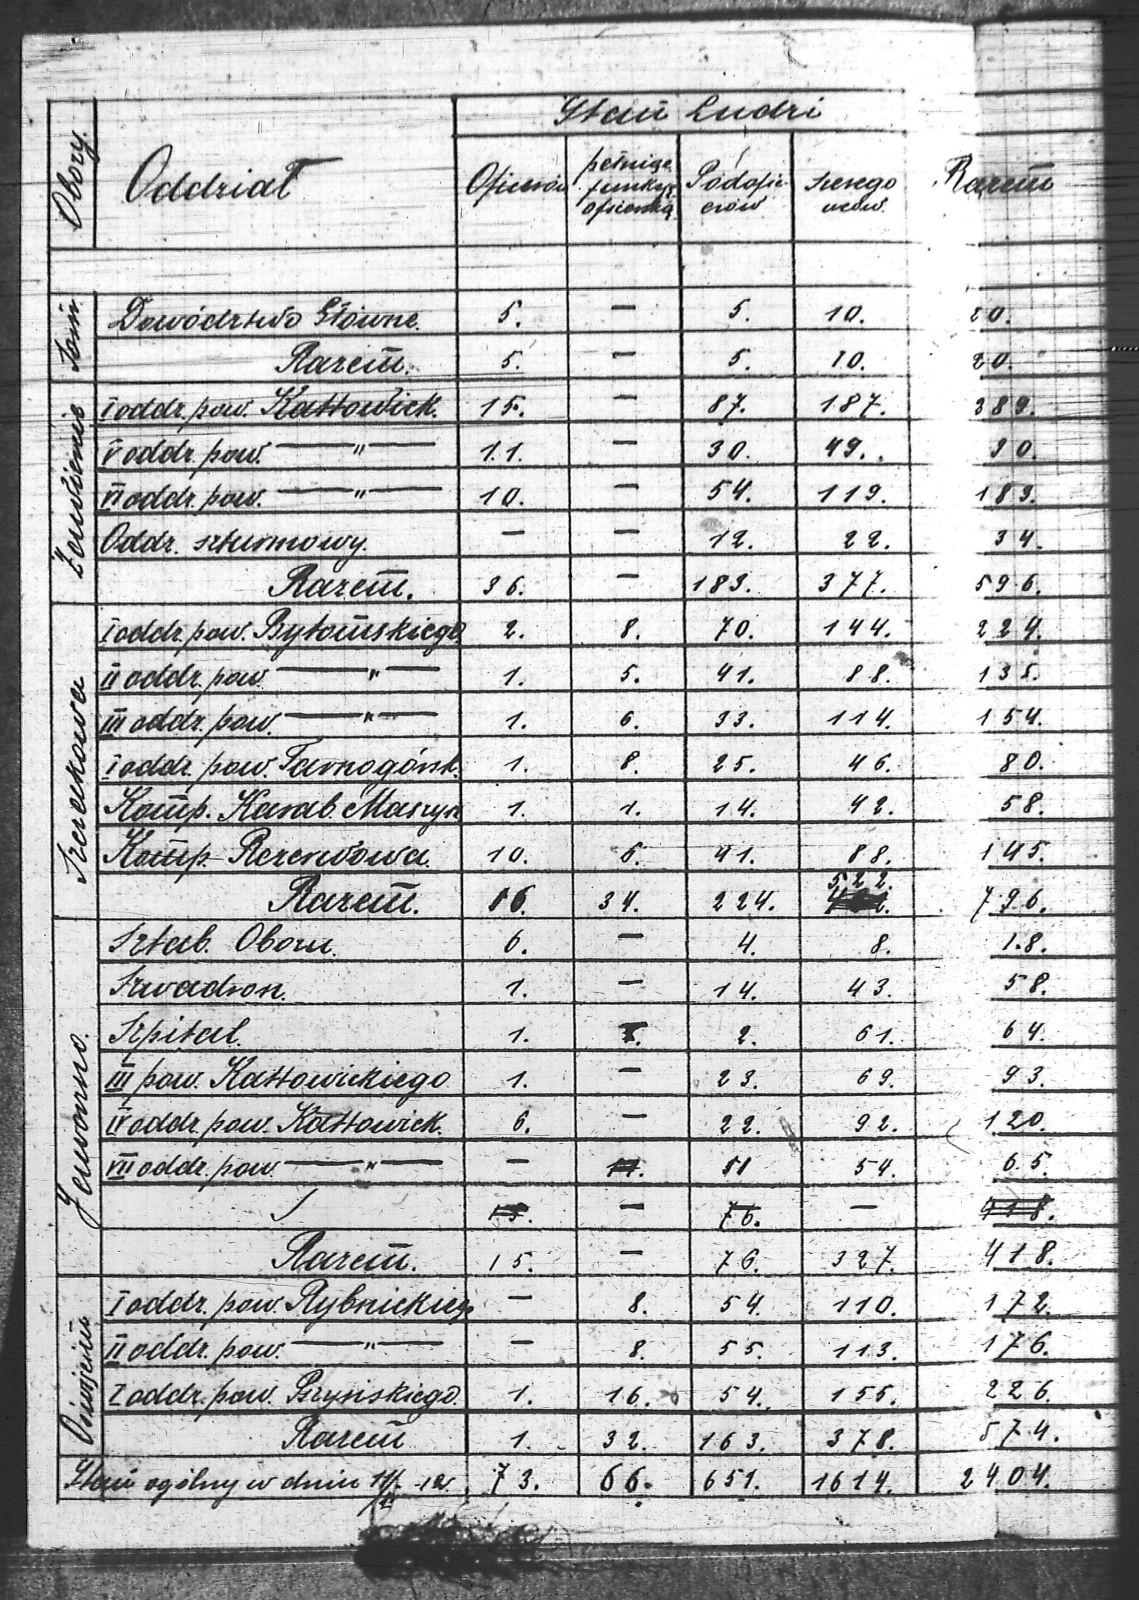 Obozy. Oddział Stan Ludzi Razem
Oficerów pełniąc. funkcyę oficerską Podofic-erów szerego wców.
Dowództwo Główne. 5. — 5. 10. 20.
Razem. 5. — 5. 10. 20.
I oddz. pow. Kattowick. 15. — 87. 187. 289.
V oddz. pow. — " — 11. — 30. 49. 90.
VI oddz. pow. — " — 10. — 54. 119. 183.
Oddz. szturmowy. — — 12. 22. 34.
Razem. 36. — 183. 377. 596.
I oddz. pow. Bytomskiego 2. 8. 70. 144. 224.
II oddz. pow. — " — 1. 5. 41. 88. 135.
III oddz. pow. — " — 1. 6. 33. 114. 154.
I oddz. pow. Tarnogórsk. 1. 8. 25. 46. 80.
Komp. Karab. Maszyn 1. 1. 14. 42. 58.
Komp. Rezerwowa. 10. 6. 41. 88. 145.
522.
Razem. 16. 34. 224. 796.
Sztab. Obozu. 6. — 4. 8. 18.
Szwadron. 1. — 14. 43. 58.
Szpital. 1. 2. 61. 64.
III pow. Kattowickiego 1. — 23. 69. 93.
IV oddz. pow. Kattowick. 6. — 22. 92. 120.
VII oddz. pow. — " — — 11. 11 54. 65.
15. — 76. — 418.
Razem. 15. — 76. 327. 418.
I oddz. pow. Rybnickieg — 8. 54. 110. 172.
II oddz. pow. — " — — 8. 55. 113. 176.
I oddz. pow. Pszynskiego. 1. 16. 54. 155. 226.
Razem 1. 32. 163. 378. 574.
Stan ogólny w dniu 73. 66. 651. 1614. 2404.
Szczakowa
Jaworzno.